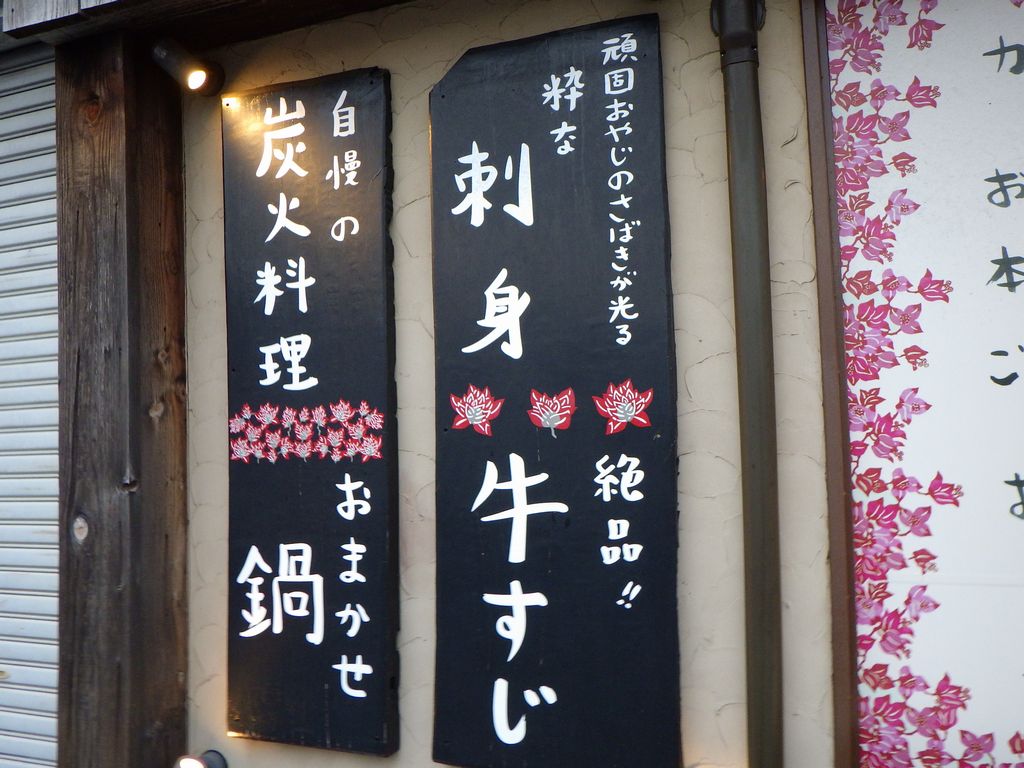 カ
お
本
ご
お
頑固おやじのさばきが光る
粋な
刺身
絶品!!
牛すじ
自慢の
炭火料理
おまかせ
鍋